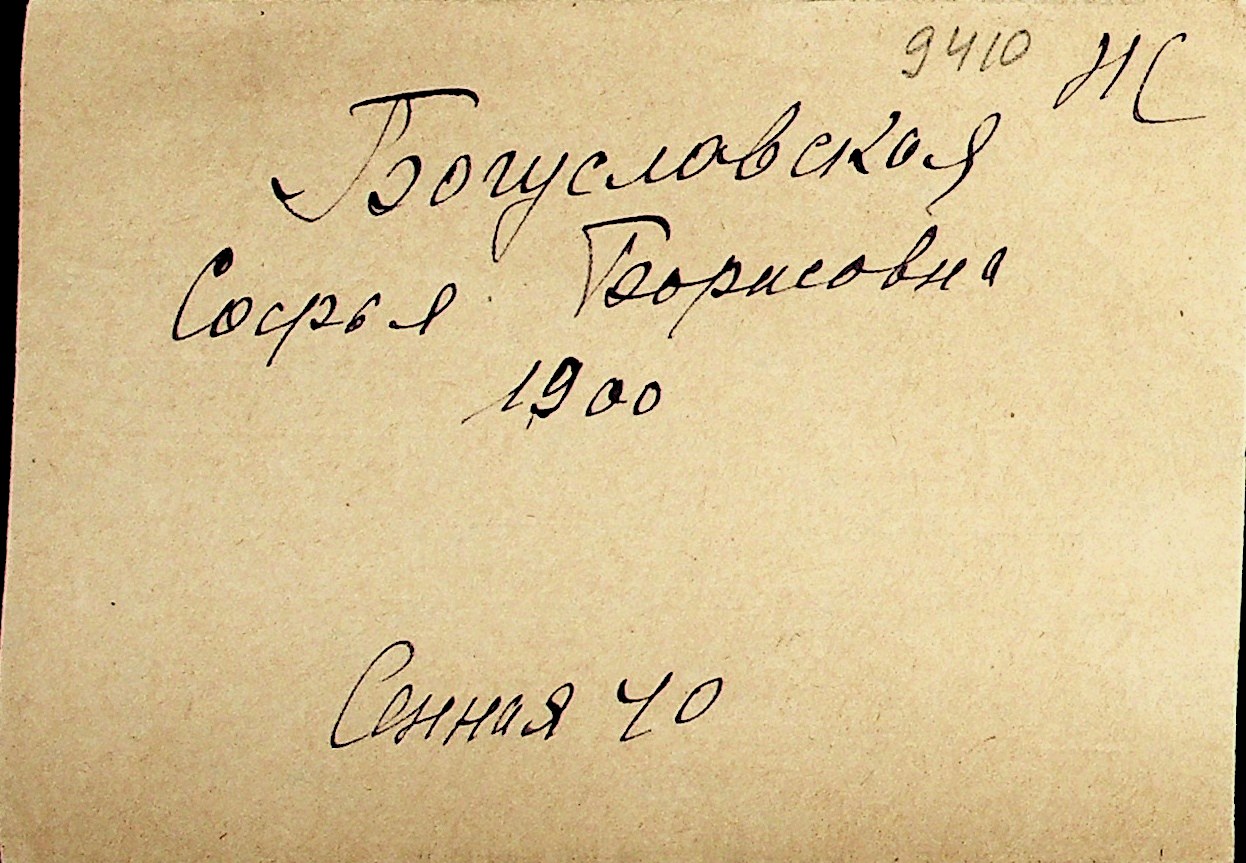 9410 НС
Богуславская
Софья Борисовна
1900
Сенная 40